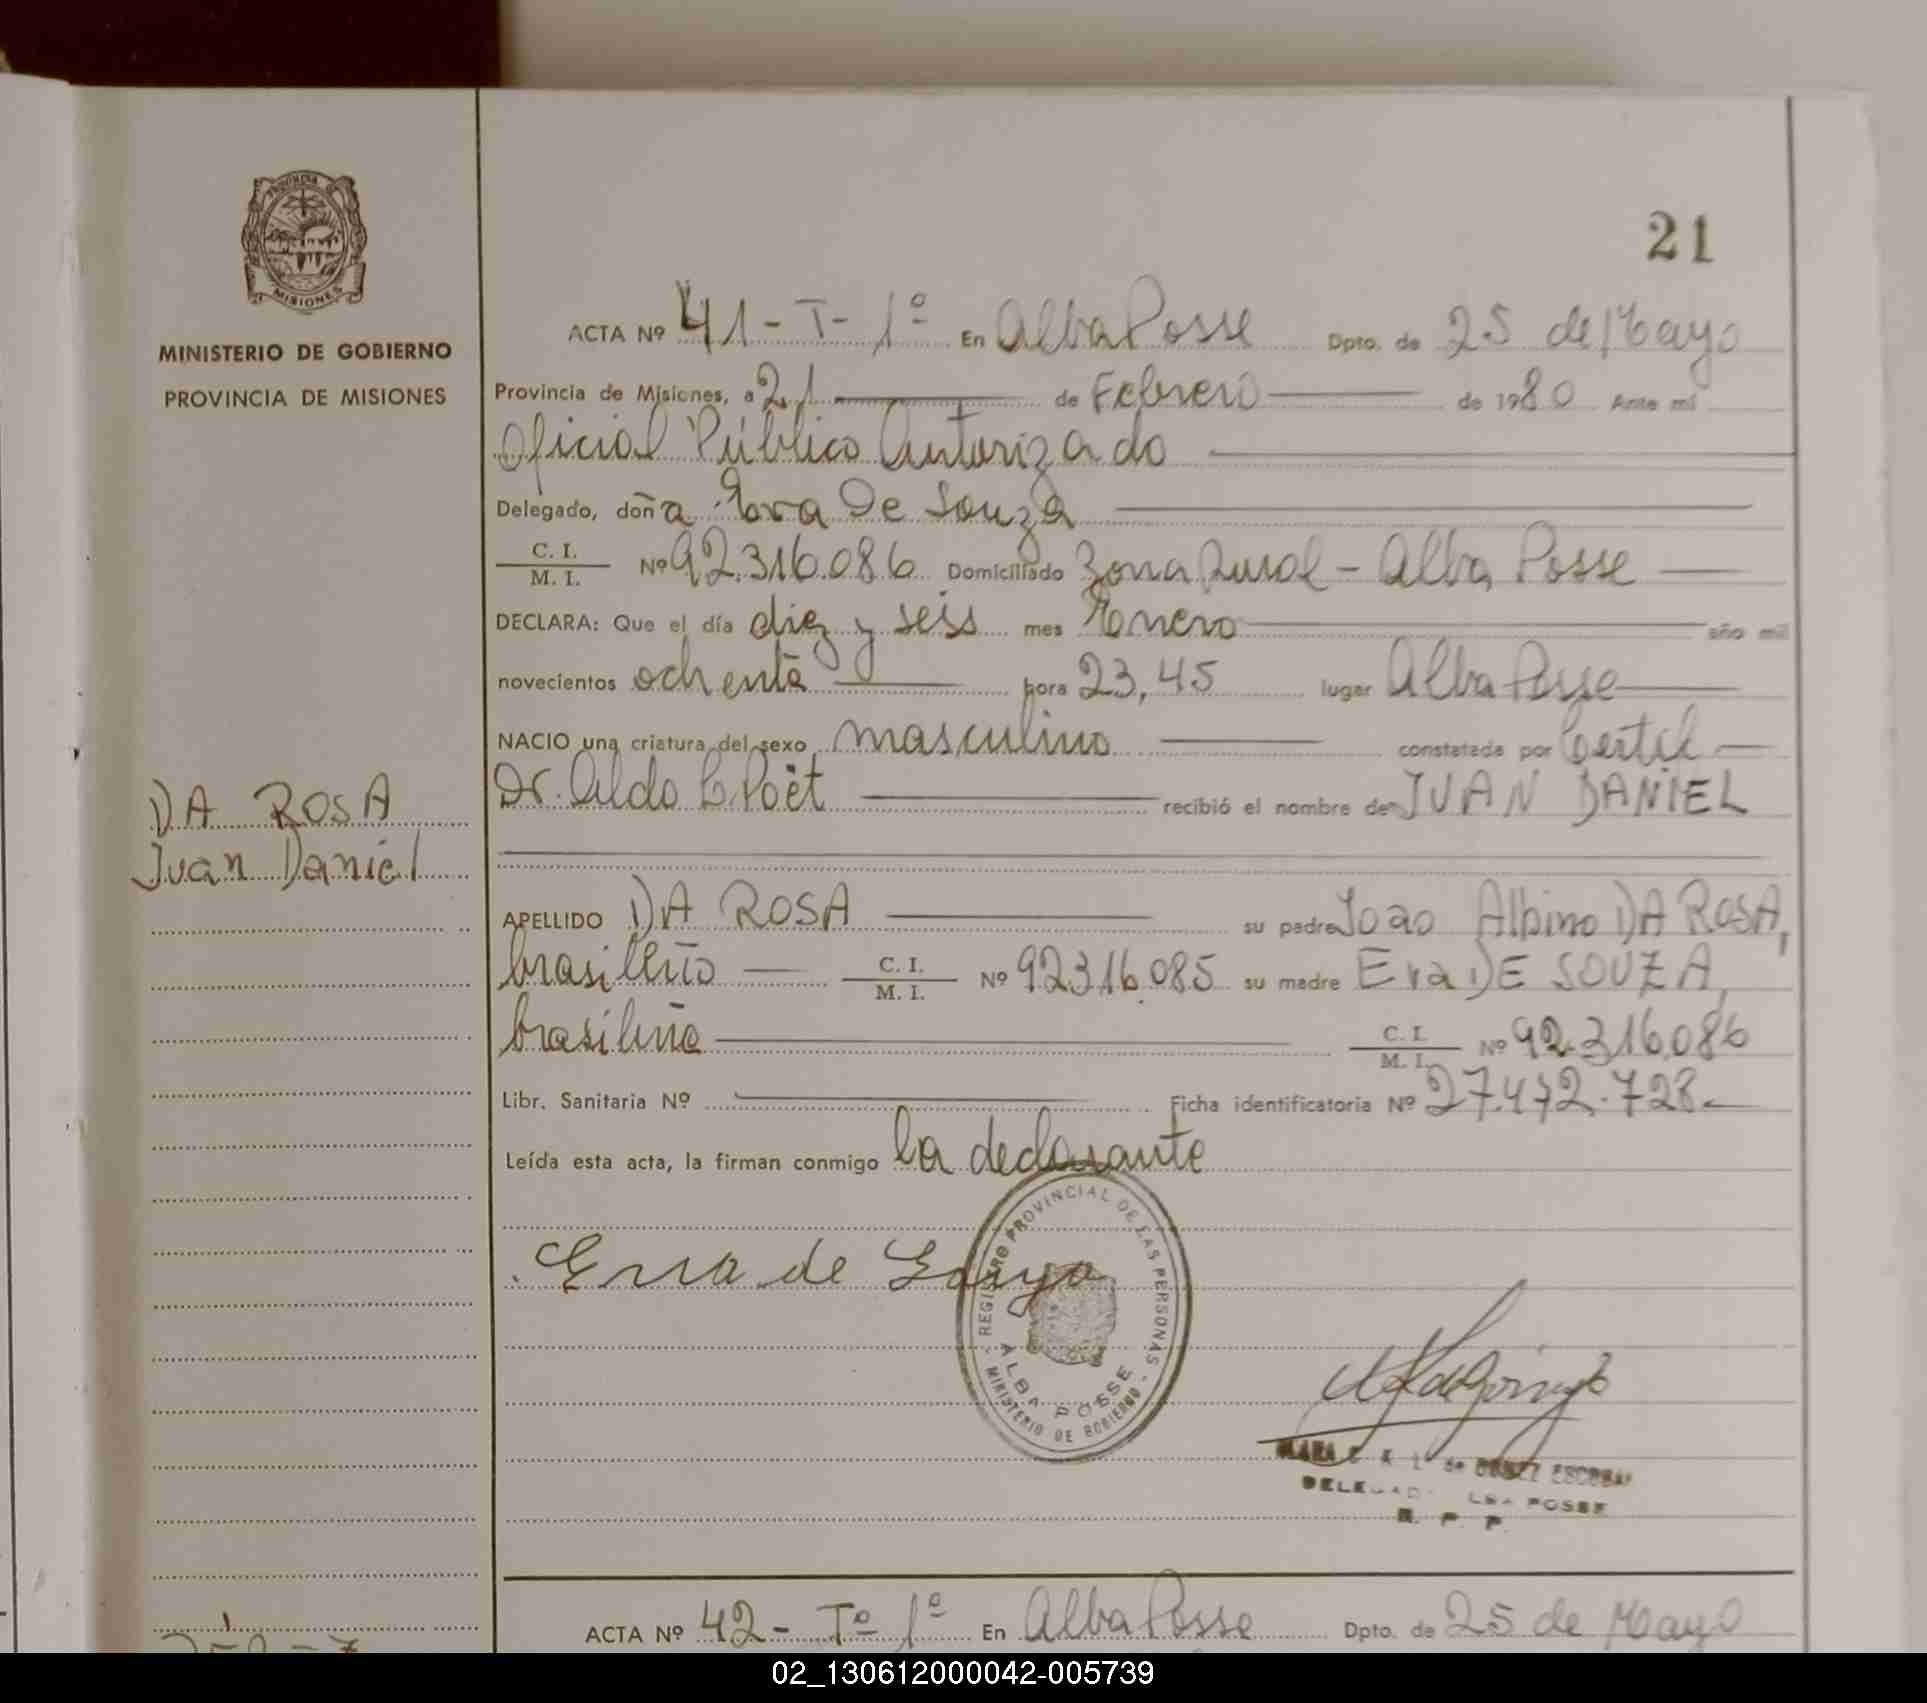 21
PROVINCIA DE
MISIONES
MINISTERIO DE GOBIERNO
PROVINCIA DE MISIONES
ACTA Nº 41 - T - 1º En Alba Posse Dpto. de 25 de Mayo
Provincia de Misiones, a 21 de Febrero de 1980 Ante mí
Oficial Público Autorizado
Delegado, doña Eva De Souza
C. I.
M. I. Nº 92.316.086 Domiciliado Zona Rural - Alba Posse
DECLARA: Que el día diez y seis mes Enero año mil
novecientos ochenta hora 23,45 lugar Alba Posse
NACIO una criatura del sexo masculino constatada por Certif.
Dr. Aldo C Poët recibió el nombre de JUAN DANIEL
DA ROSA
Juan Daniel
APELLIDO DA ROSA su padre Joao Albino DA ROSA,
brasileño C. I.
M. I. Nº 92316.085 su madre Eva DE SOUZA,
brasileña C. I.
M. I. Nº 92.316.086
Libr. Sanitaria Nº Ficha identificatoria Nº 27.472.728.-
Leída esta acta, la firman conmigo la declarante
Erva de Souza
REGISTRO PROVINCIAL DE LAS PERSONAS
ALBA POSSE
MINISTERIO DE GOBIERNO
ESCOBAR
POSSE
R. P. P.
ACTA Nº 42 - Tº 1º En Alba Posse Dpto. de 25 de Mayo
02_130612000042-005739